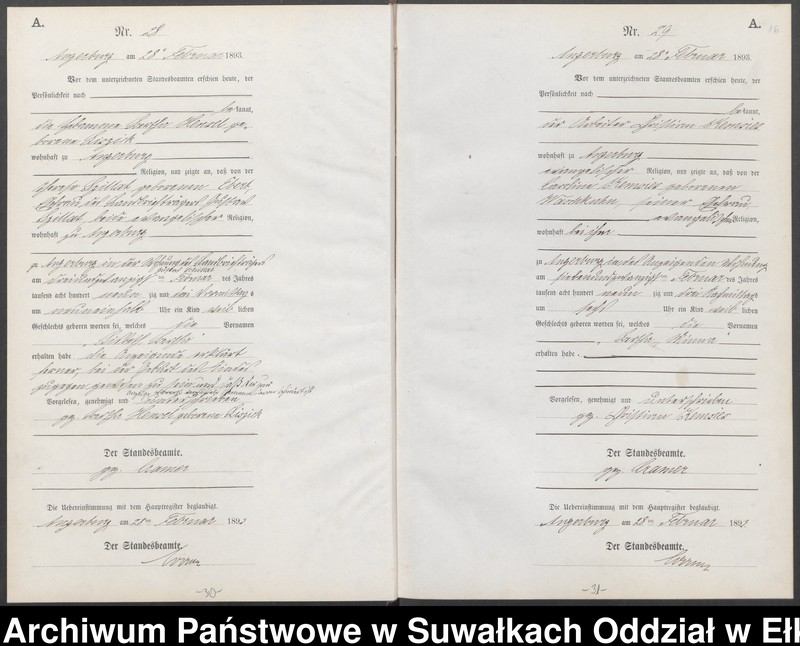 A.
Nr. 28
Angerburg am 28n Februar 1893.
Vor dem unterzeichneten Standesbeamten erschien heute, der
Persönlichkeit nach
bekannt,
die Hebamme Bertha Hensel ge-
borene
wohnhaft zu Angerburg
Religion, und zeigte an, daß von der
geborenen Ebert,
Ehefrau des
beide evangelischer Religion,
wohnhaft zu Angerburg
zu Angerburg in der Wohnung des
am dreiundzwanzigsten Februar des Jahres
tausend acht hundert neunzig und drei Vormittags
um neuneinhalb Uhr ein Kind weiblichen
Geschlechts geboren worden sei, welches die Vornamen
Bertha
erhalten habe. die Anzeigende erklärt
ferner, bei der Geburt des Kindes
zugegen gewesen zu sein
Vorgelesen, genehmigt und unterschrieben
gez. Bertha Hensel geborene
Der Standesbeamte.
gez. Cramer
Die Uebereinstimmung mit dem Hauptregister beglaubigt.
Angerburg am 28ten Februar 1893
Der Standesbeamte.
-30-
A.
16
Nr. 29
Angerburg am 28n Februar 1893
Vor dem unterzeichneten Standesbeamten erschien heute, der
Persönlichkeit nach
bekannt,
der Arbeiter Christian
wohnhaft zu Angerburg
evangelischer Religion, und zeigte an, daß von der
Caroline geborenen
seiner Ehefrau
evangelischer Religion,
wohnhaft bei ihm
zu Angerburg in des Anzeigenden Behausung
am siebenundzwanzigsten Februar des Jahres
tausend acht hundert neunzig und drei Nachmittags
um sechs Uhr ein Kind weiblichen
Geschlechts geboren worden sei, welches die Vornamen
Bertha Minna
erhalten habe.
Vorgelesen, genehmigt und unterschrieben
gez. Christian
Der Standesbeamte.
gez. Cramer
Die Uebereinstimmung mit dem Hauptregister beglaubigt.
Angerburg am 28ten Februar 1893.
Der Standesbeamte.
-31-
Archiwum Państwowe w Suwałkach Oddział w Ełk